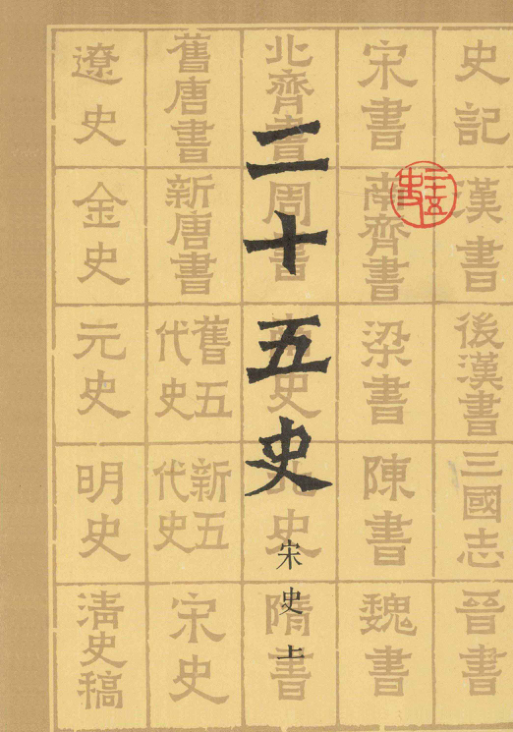 二十五史
宋史上
史記
漢書
後漢書
三國志
晉書
宋書
南齊書
梁書
陳書
魏書
北齊書
周書
南史
北史
隋書
舊唐書
新唐書
舊五代史
新五代史
宋史
遼史
金史
元史
明史
清史稿